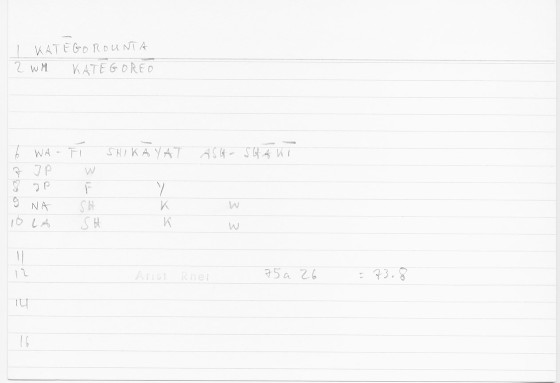 1 KATĒGOROUNTA
2 WM KATĒGORĒO
6 WA-FĪ SHIKĀYAT ASH-SHĀKĪ
7 JP W
8 JP F Y
9 NA SH K W
10 LA SH K W
11
12 Arist Rhet 75a 26 = 73.8
14
16